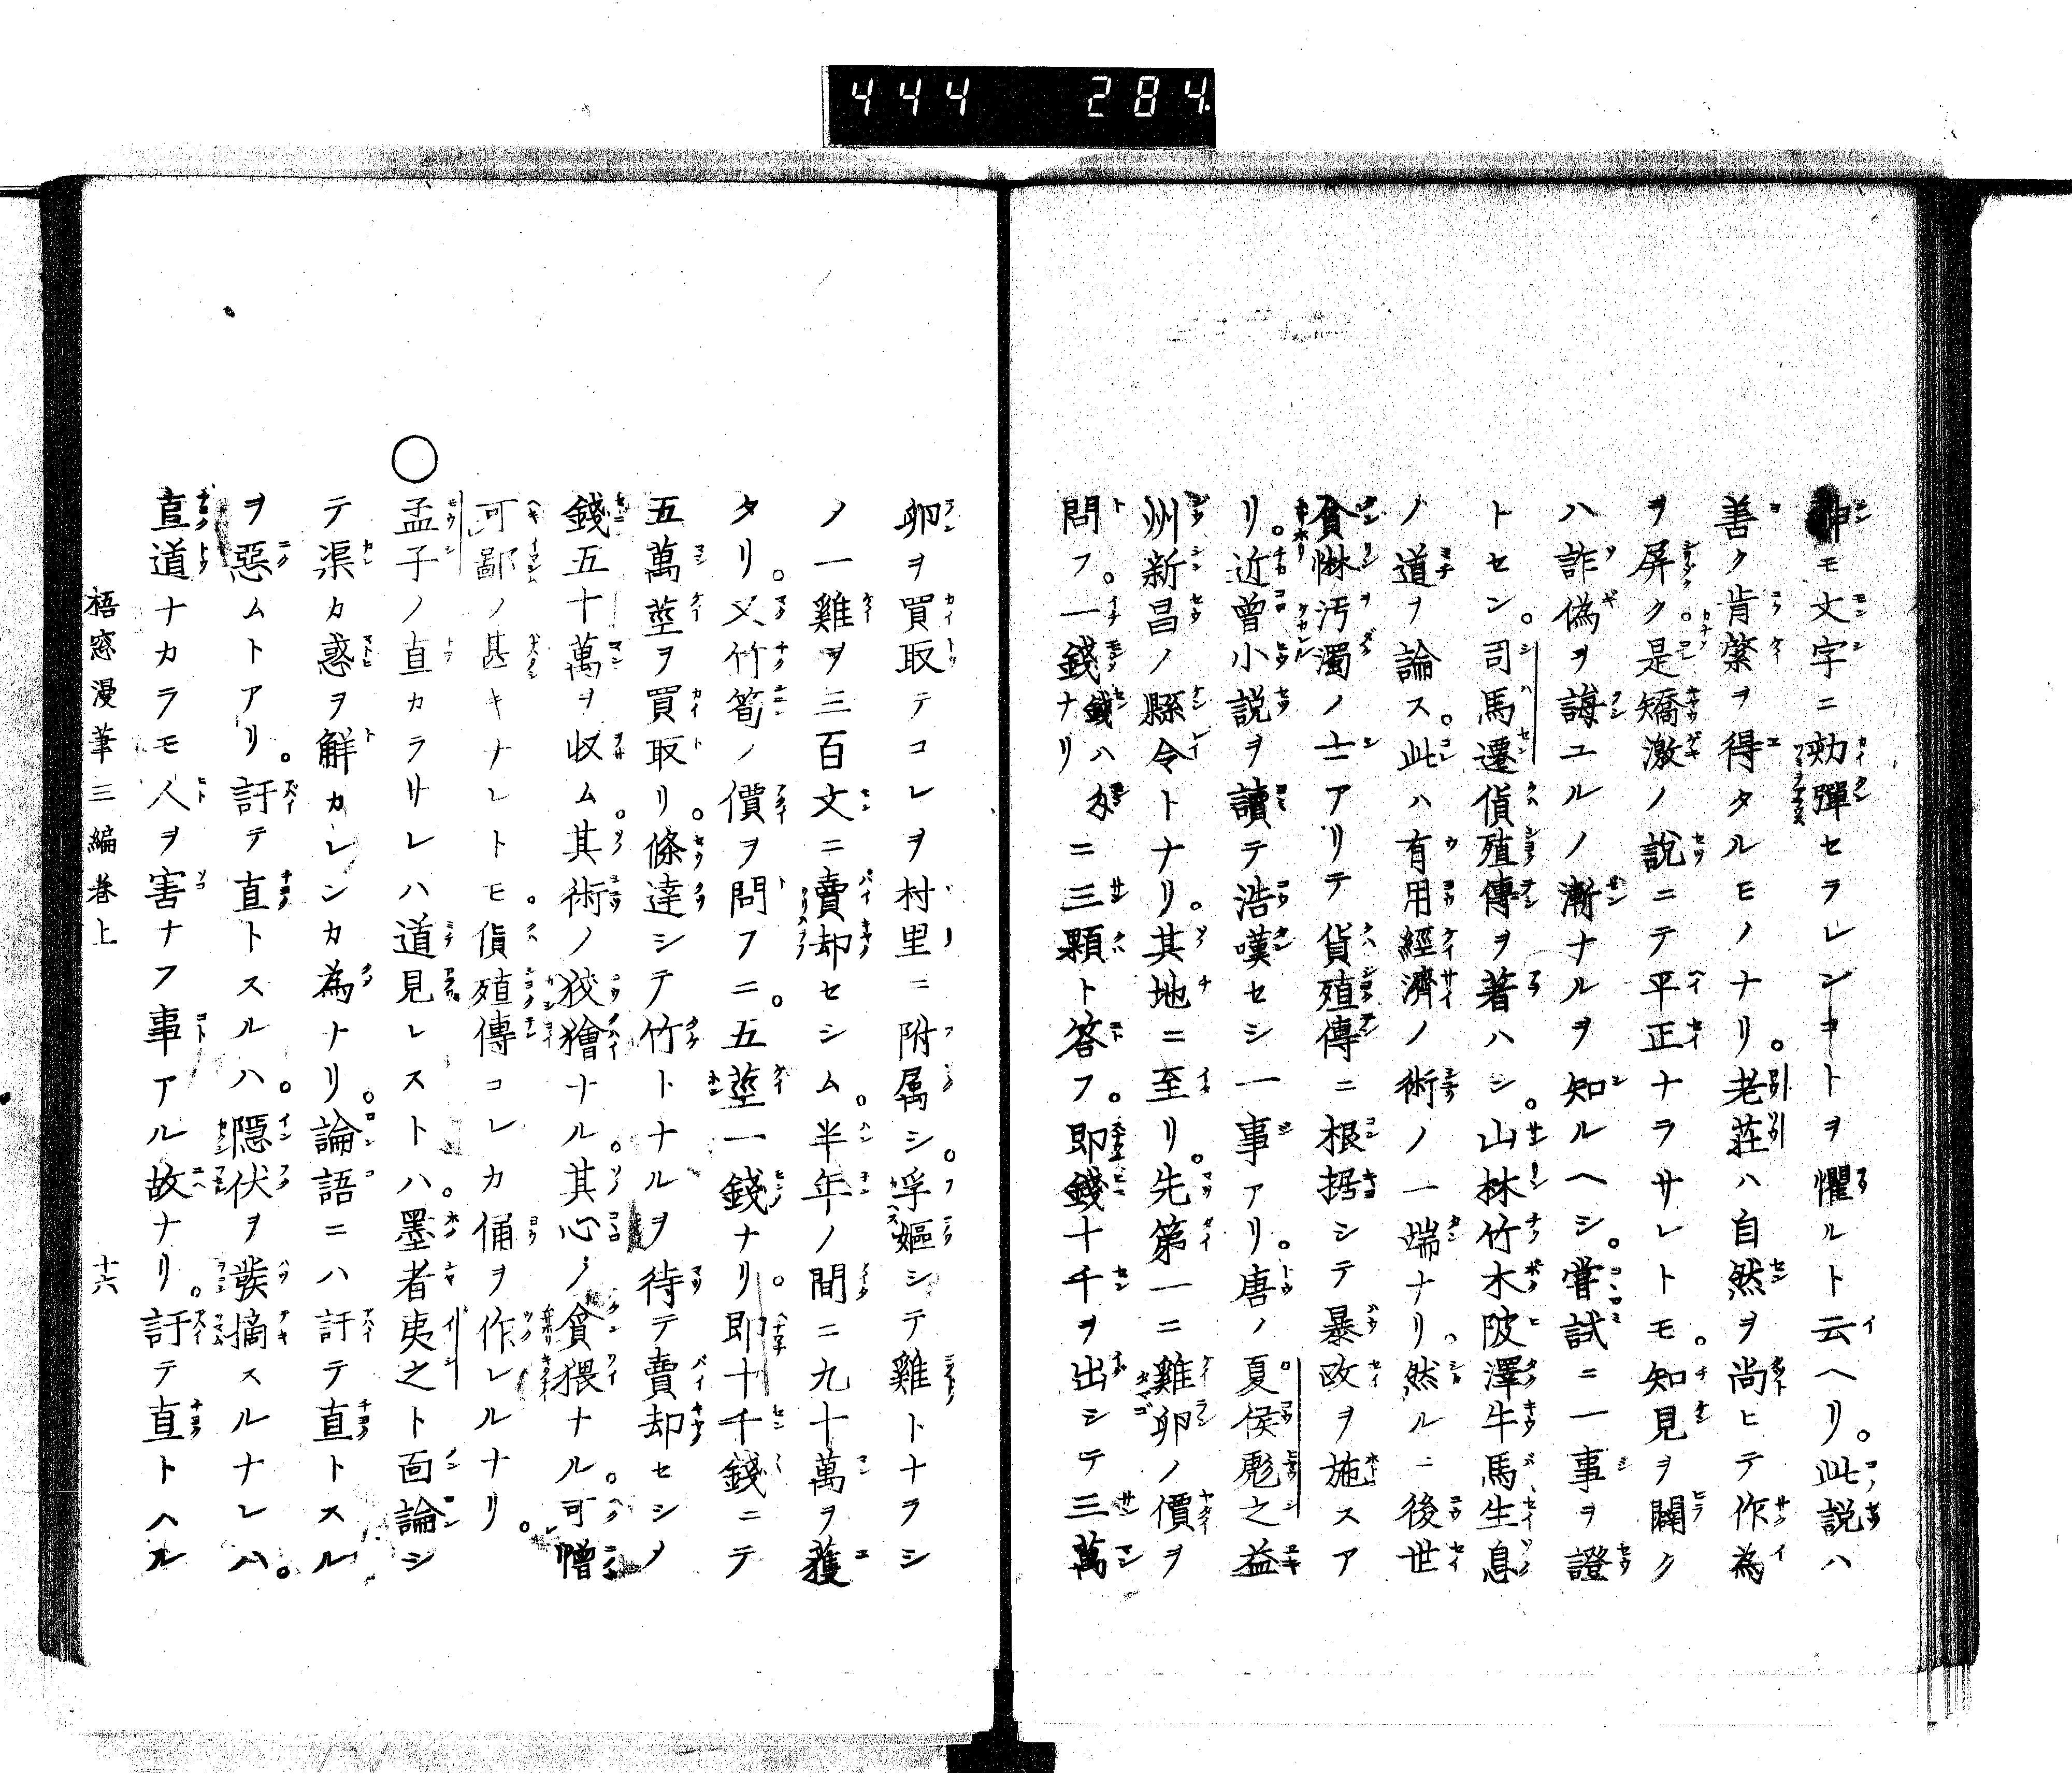 444 284
神モ文字ニ劾彈セラレンコトヲ懼ルト云ヘリ。此説ハ
善ク肯綮ヲ得タルモノナリ。老莊ハ自然ヲ尚ヒテ作為
ヲ屏ク。是矯激ノ説ニテ平正ナラサレトモ。知見ヲ闢ク
ハ詐偽ヲ誨ユルノ漸ナルヲ知ルヘシ。嘗試ニ一事ヲ證
トセン。司馬遷貨殖傳ヲ著ハシ。山林竹木陂澤牛馬生息
ノ道ヲ論ス。此ハ有用經濟ノ術ノ一端ナリ。然ルニ後世
貪惏汚濁ノ士アリテ貨殖傳ニ根据シテ暴政ヲ施スア
リ。近曾小説ヲ讀テ浩嘆セシ一事アリ。唐ノ夏侯彪之益
州新昌ノ縣令トナリ。其地ニ至リ。先第一ニ雞卵ノ價ヲ
問フ。一錢ナリ錢ハ文ニ三顆ト答フ。即錢十千ヲ出シテ三萬
卵ヲ買取テコレヲ村里ニ附属シ。孚嫗シテ雞トナラシ
ノ一雞ヲ三百文ニ賣却セシム。半年ノ間ニ九十萬ヲ獲
タリ。又竹筍ノ價ヲ問フニ。五莖一錢ナリ。即十千錢ニテ
五萬莖ヲ買取リ。條達シテ竹トナルヲ待テ賣却セシメ
錢五十萬ヲ收ム。其術ノ狡獪ナル。其心ノ貪猥ナル。可憎
可鄙ノ甚キナレトモ。貨殖傳コレカ俑ヲ作レルナリ。
○孟子ノ直カラサレハ道見レストハ。墨者夷之ト面論シ
テ渠カ惑ヲ解カレンカ為ナリ。論語ニハ訐テ直トスル
ヲ惡ムトアリ。訐テ直トスルハ。隱伏ヲ發摘スルナレハ。
直道ナカラモ人ヲ害ナフ事アル故ナリ。訐テ直トハル
梧窓漫筆三編卷上 十六